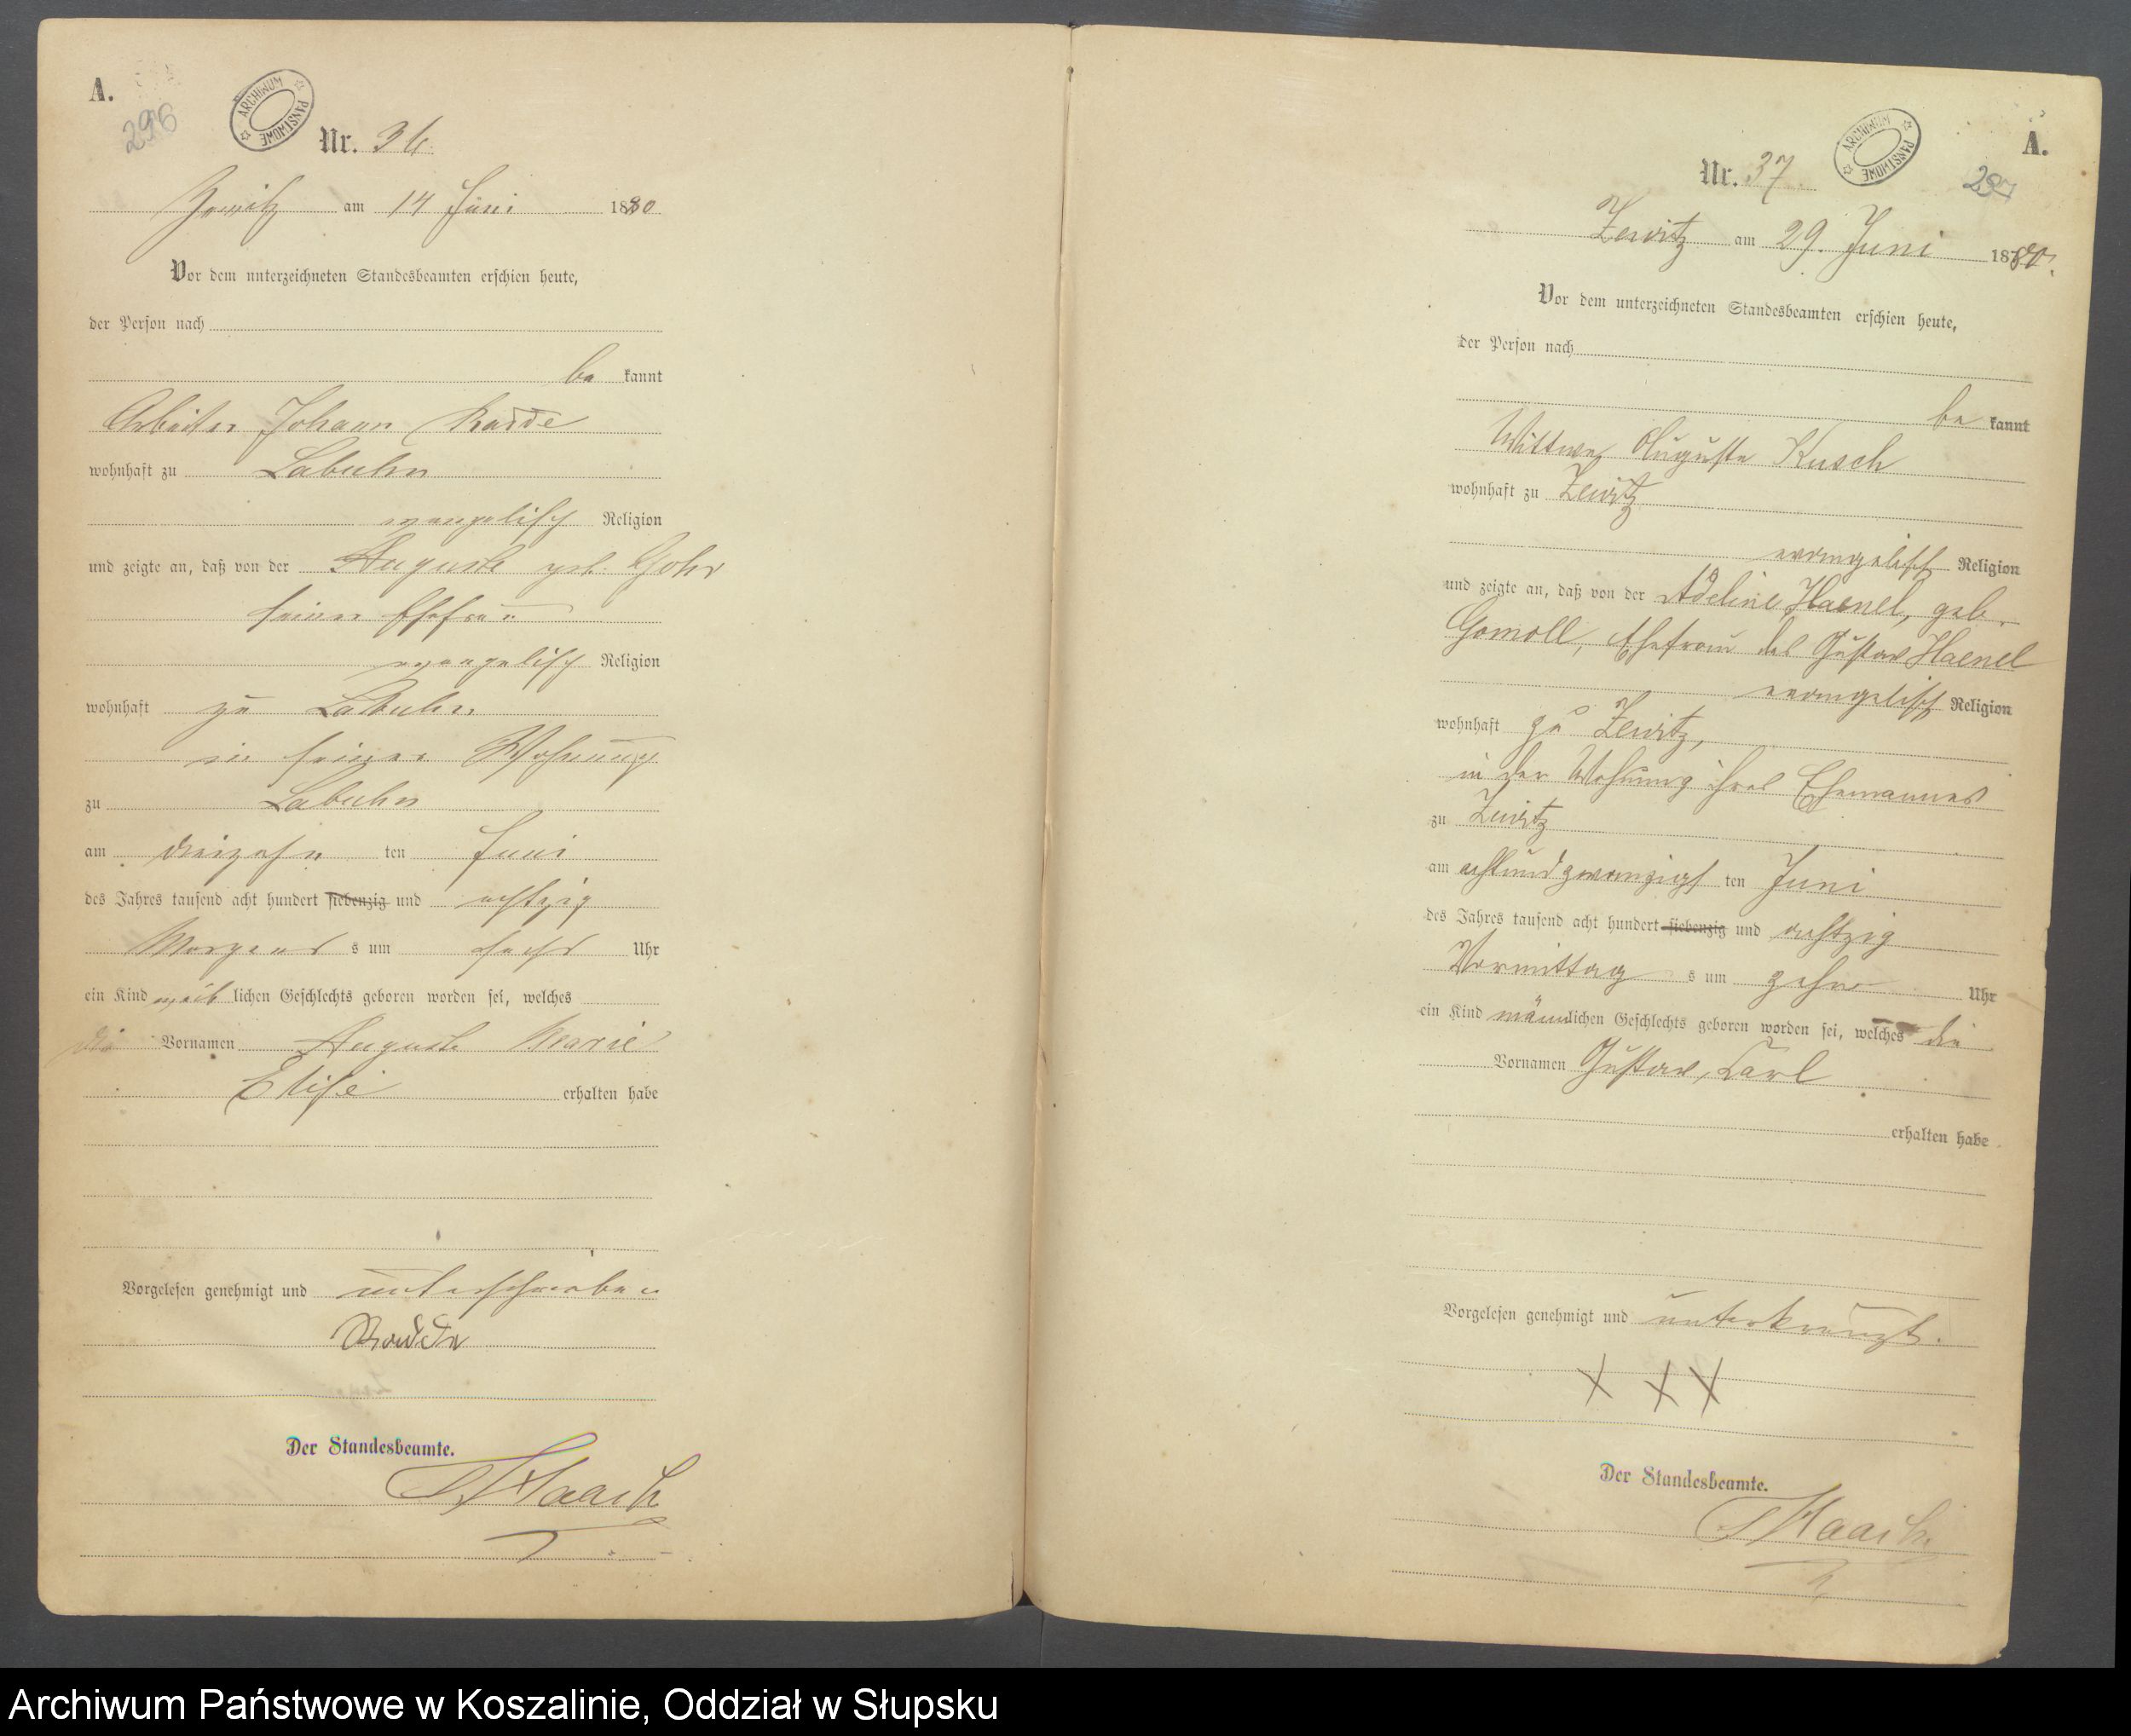 A.
296
ARCHIWUM PAŃSTWOWE
Nr. 36.
Zewitz am 14 Juni 1880
Vor dem unterzeichneten Standesbeamten erschien heute,
der Person nach
be kannt
Arbeiter Johann Radde
wohnhaft zu Labuhn
evangelisch Religion
und zeigte an, daß von der Auguste geb. Gohr
seiner Ehefrau
evangelisch Religion
wohnhaft zu Labuhn
in seiner Wohnung
zu Labuhn
am dreizehn ten Juni
des Jahres tausend acht hundert siebenzig und achtzig
Morgens s um sechs Uhr
ein Kind weib lichen Geschlechts geboren worden sei, welches
die Vornamen Auguste Marie
Elise erhalten habe
Vorgelesen genehmigt und unterschrieben
Radde
Der Standesbeamte.
A.
287
ARCHIWUM PAŃSTWOWE
Nr. 37.
Zewitz am 29. Juni 1880.
Vor dem unterzeichneten Standesbeamten erschien heute,
der Person nach
be kannt
Wittwe Auguste Kusch
wohnhaft zu Zewitz
evangelisch Religion
und zeigte an, daß von der Adeline Haenel, geb.
Gomoll, Ehefrau des Gustav Haenel
evangelisch Religion
wohnhaft zu Zewitz,
in der Wohnung ihres Ehemannes
zu Zewitz
am achtundzwanzigst ten Juni
des Jahres tausend acht hundert siebenzig und achtzig
Vormittag s um zehn Uhr
ein Kind männlichen Geschlechts geboren worden sei, welches die
Vornamen Gustav, Carl
erhalten habe
Vorgelesen genehmigt und unterkreuzt.
X X X
Der Standesbeamte.
Archiwum Państwowe w Koszalinie, Oddział w Słupsku